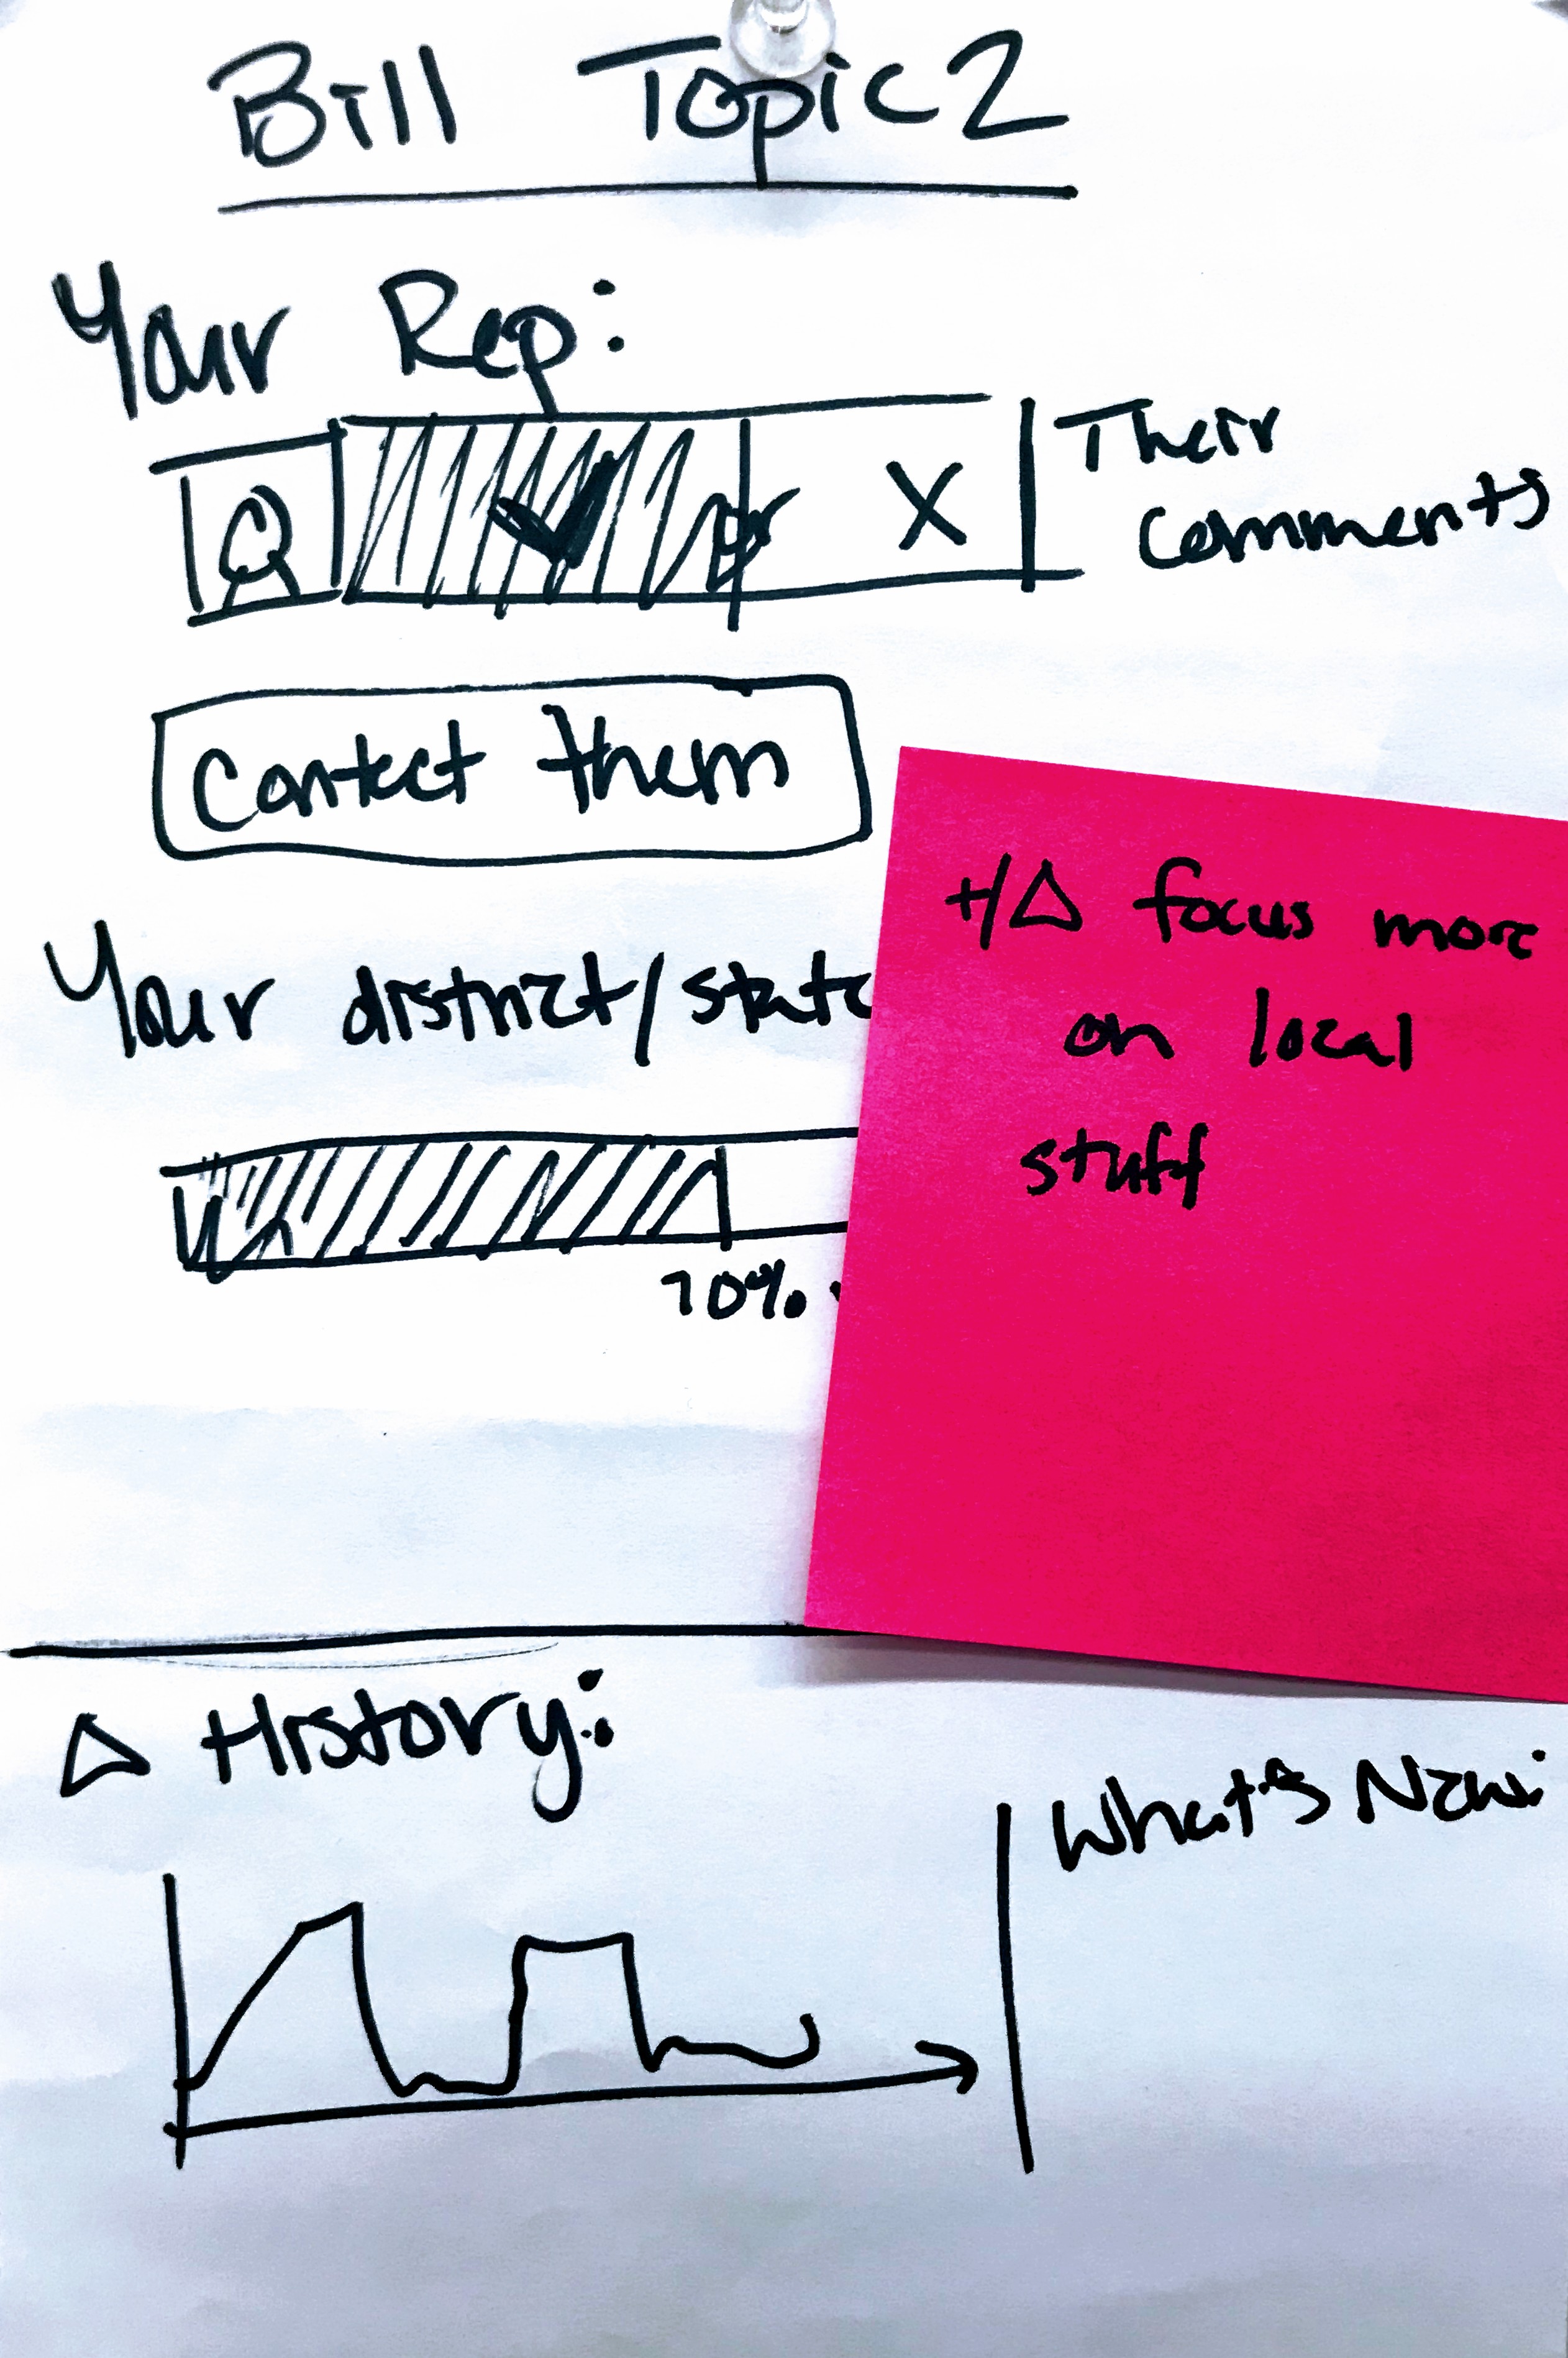 Bill Topic 2
Your Rep:
Their
comments
X
Contact them
Your district/state
70%
+/Δ focus more
on local
stuff
Δ History:
What's New: